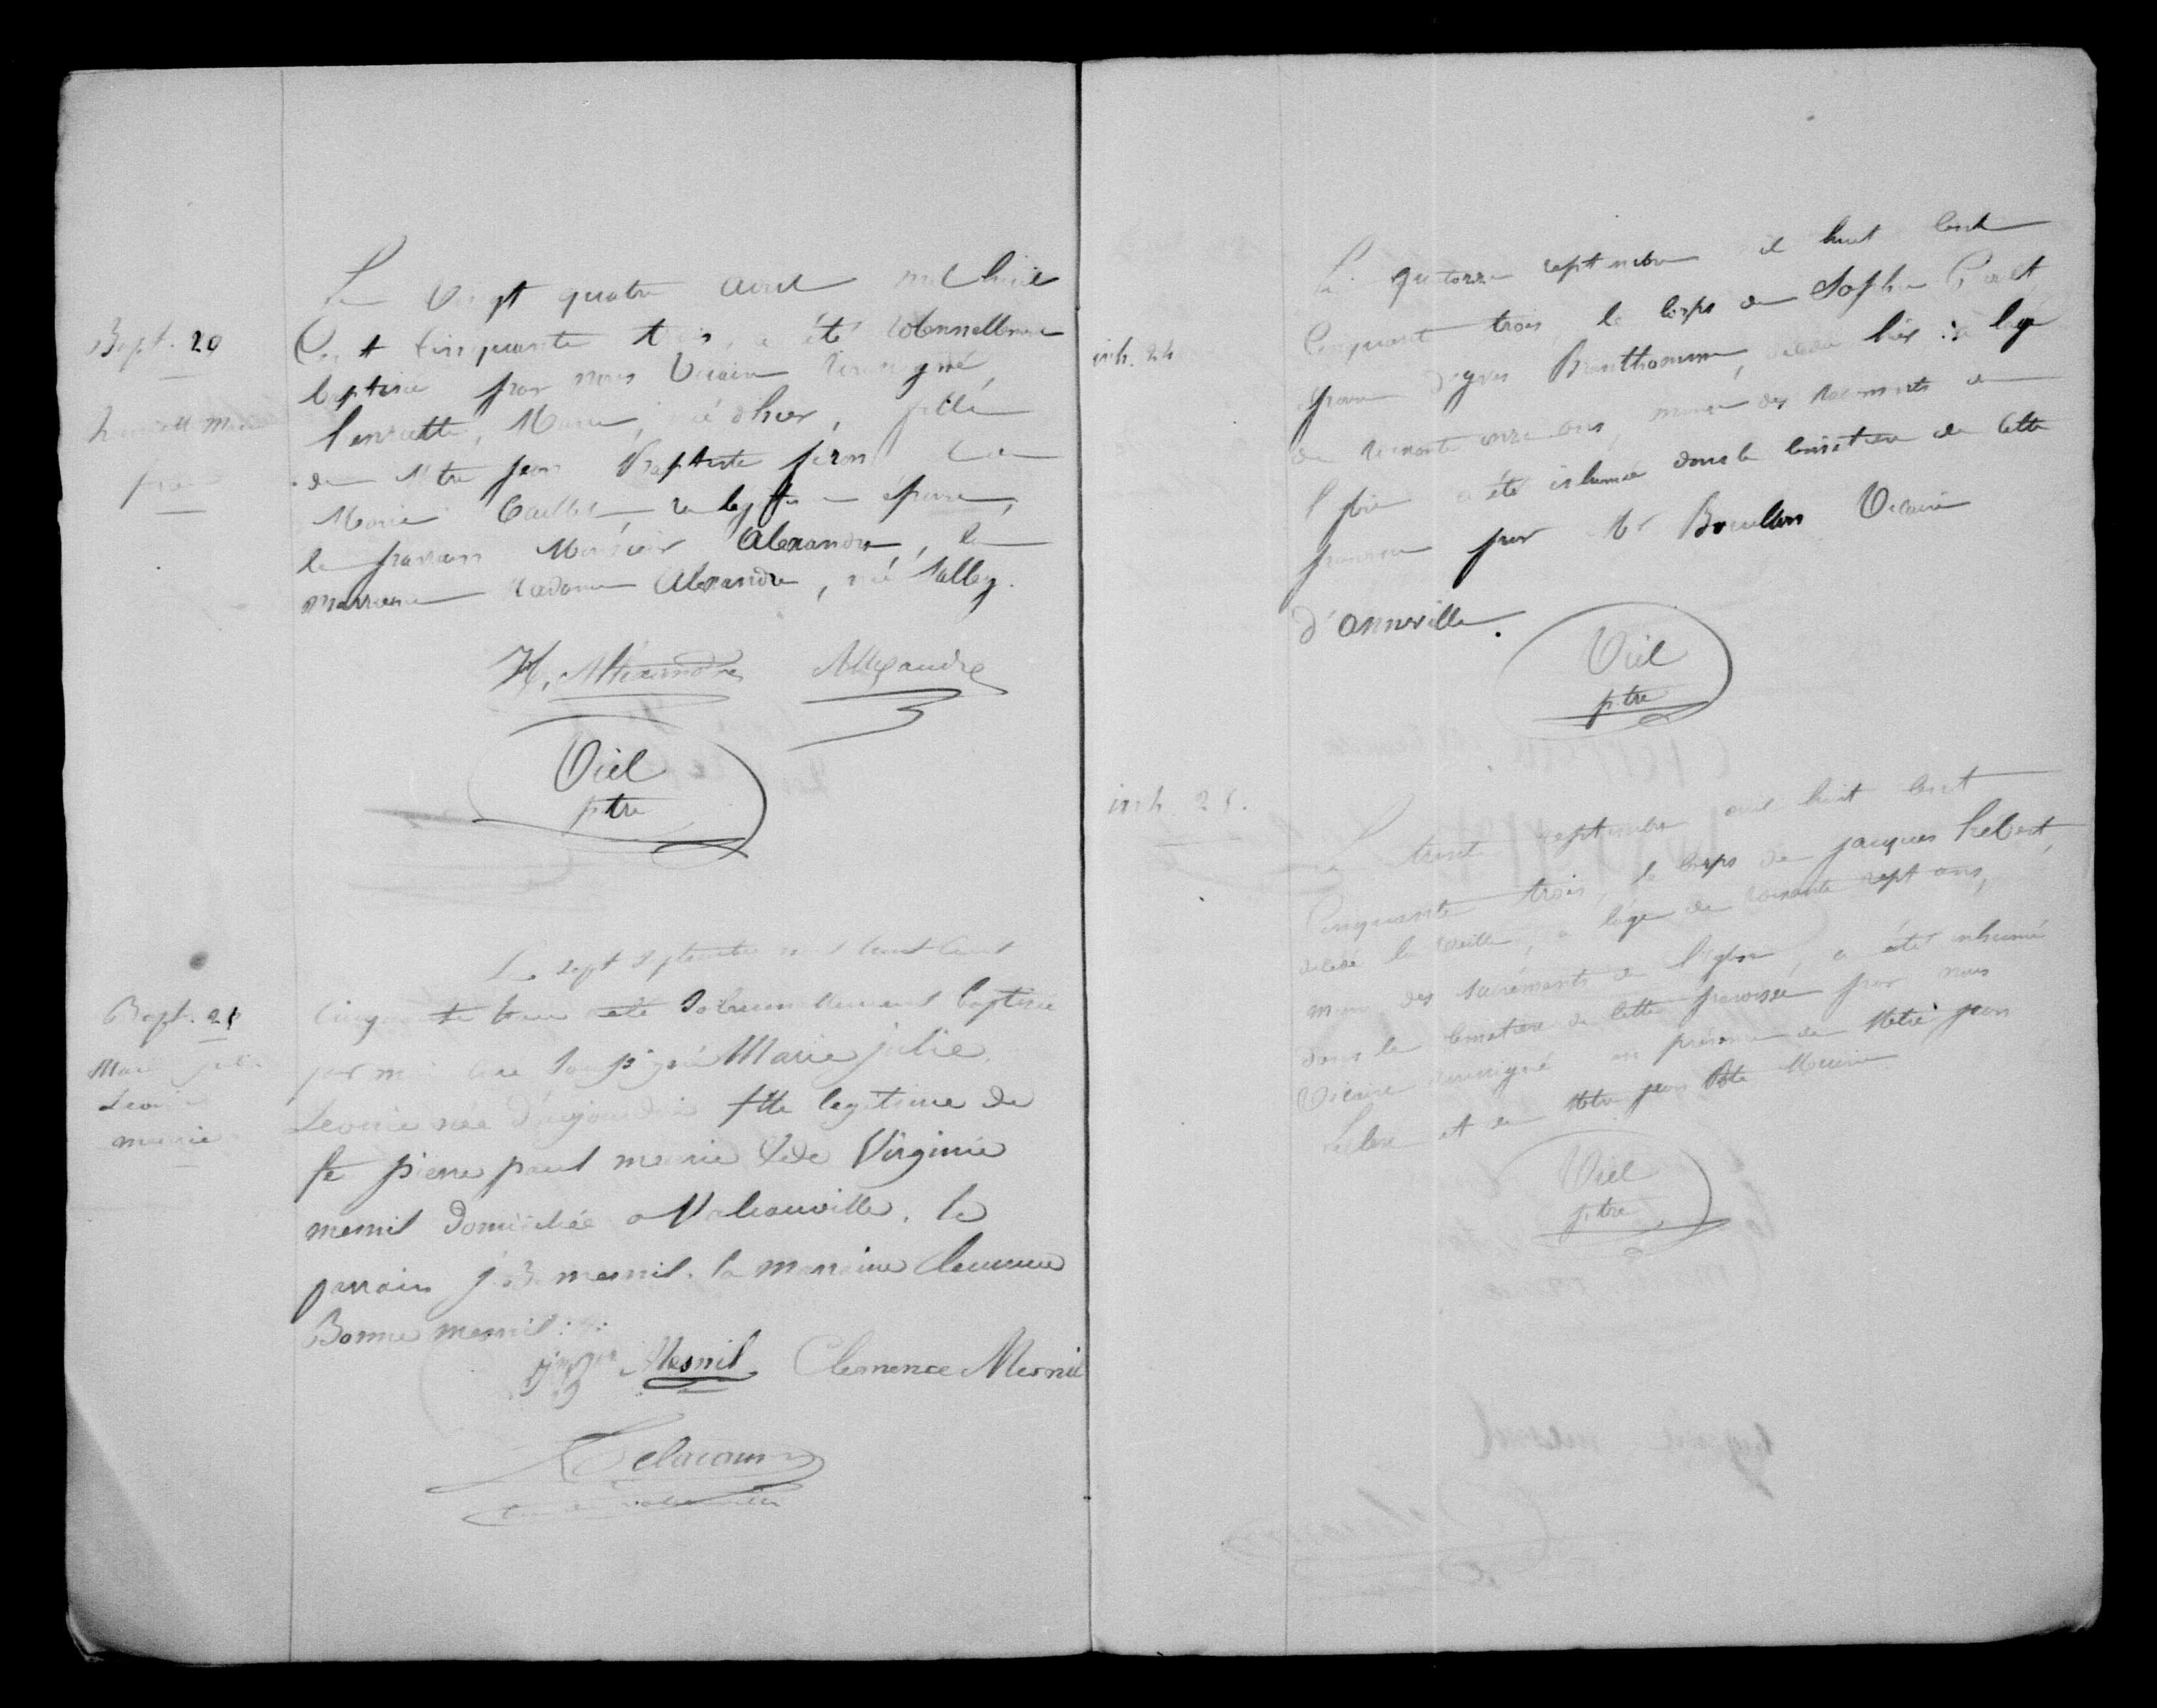 Bapt. 20
Le Vingt quatre avril mil huit
Cent Cinquante trois, a été solennellement
baptisée par nous Vicaire soussigné,
henriette, Marie, née d'hier, fille
de Mtre jean Baptiste
Marie sa légitime épouse,
le parrain Monsieur Alexandre, la
marraine Madame Alexandre, née Salley.
H. Alexandre Alexandre
Viel
ptre
Bapt. 21
Marie julie
Léonie
Le sept septembre mil huit cent
cinquante trois a été solennellement baptisée
par moi curé soussigné Marie julie
Leonie née d'aujourdhui fille legitime de
pierre paul & de Virginie
mesnil domiciliée a le
parrain J. B. mesnil. la marraine Clemence
Bonne mesnil
Mesnil Clemence Mesnil
Delacour
inh. 24
Le quatorze septembre mil huit cent
Cinquante trois, le corps de Sophie
épouse d'yves Branthomme, décédée hier à l'age
de soixante onze ans, munie des sacrements de
l'église a été inhumée dans le cimetière de cette
paroisse par Mr Vicaire
d'anneville.
Viel
ptre
inh. 25.
Le trente septembre mil huit cent
Cinquante trois, le corps de jacques hebert,
décédé la veille, a l'age de soixante sept ans,
muni des sacréments de l'église, a été inhumé
dans le cimetière de cette paroisse par nous
Vicaire soussigné en présence de Mtre jean
et de Mtre jean Bte
Viel
ptre